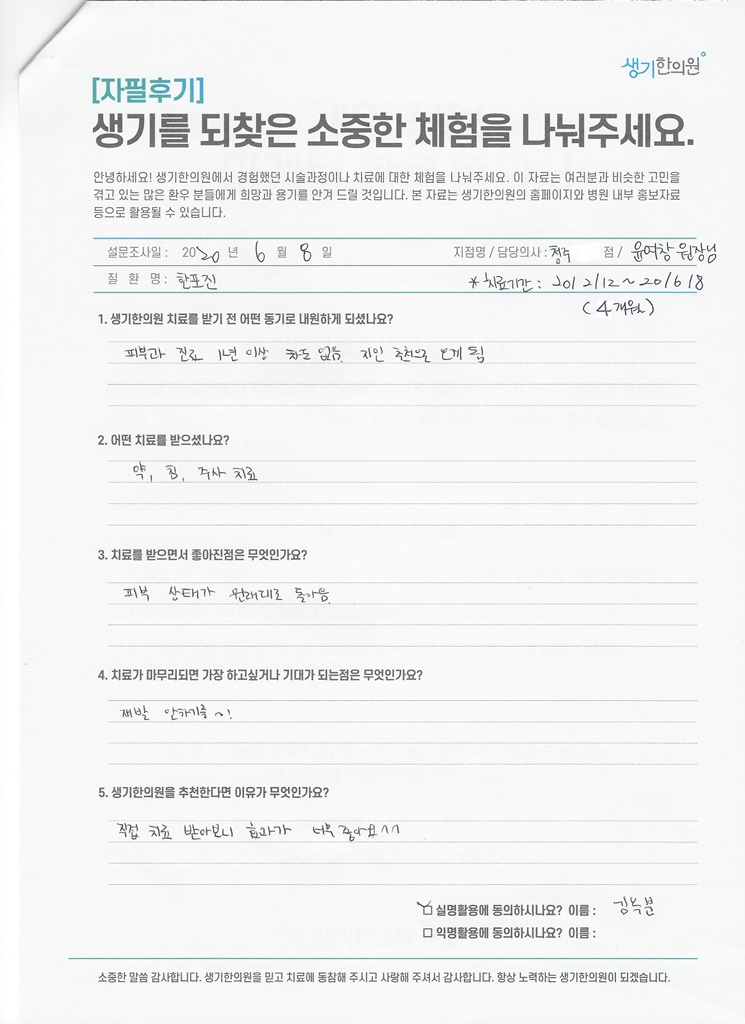 생기한의원
[자필후기]
생기를 되찾은 소중한 체험을 나눠주세요.
안녕하세요! 생기한의원에서 경험했던 시술과정이나 치료에 대한 체험을 나눠주세요. 이 자료는 여러분과 비슷한 고민을
겪고 있는 많은 환우 분들에게 희망과 용기를 안겨 드릴 것입니다. 본 자료는 생기한의원의 홈페이지와 병원 내부 홍보자료
등으로 활용될 수 있습니다.
설문조사일 : 2020 년 6 월 8 일 지점명 / 담당의사 : 청주 점 / 윤여창 원장님
질 환 명 : 한포진 * 치료기간 : 20/2/12 ~ 20/6/8
(4개월)
1. 생기한의원 치료를 받기 전 어떤 동기로 내원하게 되셨나요?
피부과 진료 1년 이상 차도 없음. 지인 추천으로 오게 됨
2. 어떤 치료를 받으셨나요?
약, 침, 주사 치료
3. 치료를 받으면서 좋아진점은 무엇인가요?
피부 상태가 원래대로 돌아옴.
4. 치료가 마무리되면 가장 하고싶거나 기대가 되는점은 무엇인가요?
재발 안하기를 ~!
5. 생기한의원을 추천한다면 이유가 무엇인가요?
직접 치료 받아보니 효과가 너무 좋아요^^
실명활용에 동의하시나요? 이름 : 김옥분
익명활용에 동의하시나요? 이름 :
소중한 말씀 감사합니다. 생기한의원을 믿고 치료에 동참해 주시고 사랑해 주셔서 감사합니다. 항상 노력하는 생기한의원이 되겠습니다.